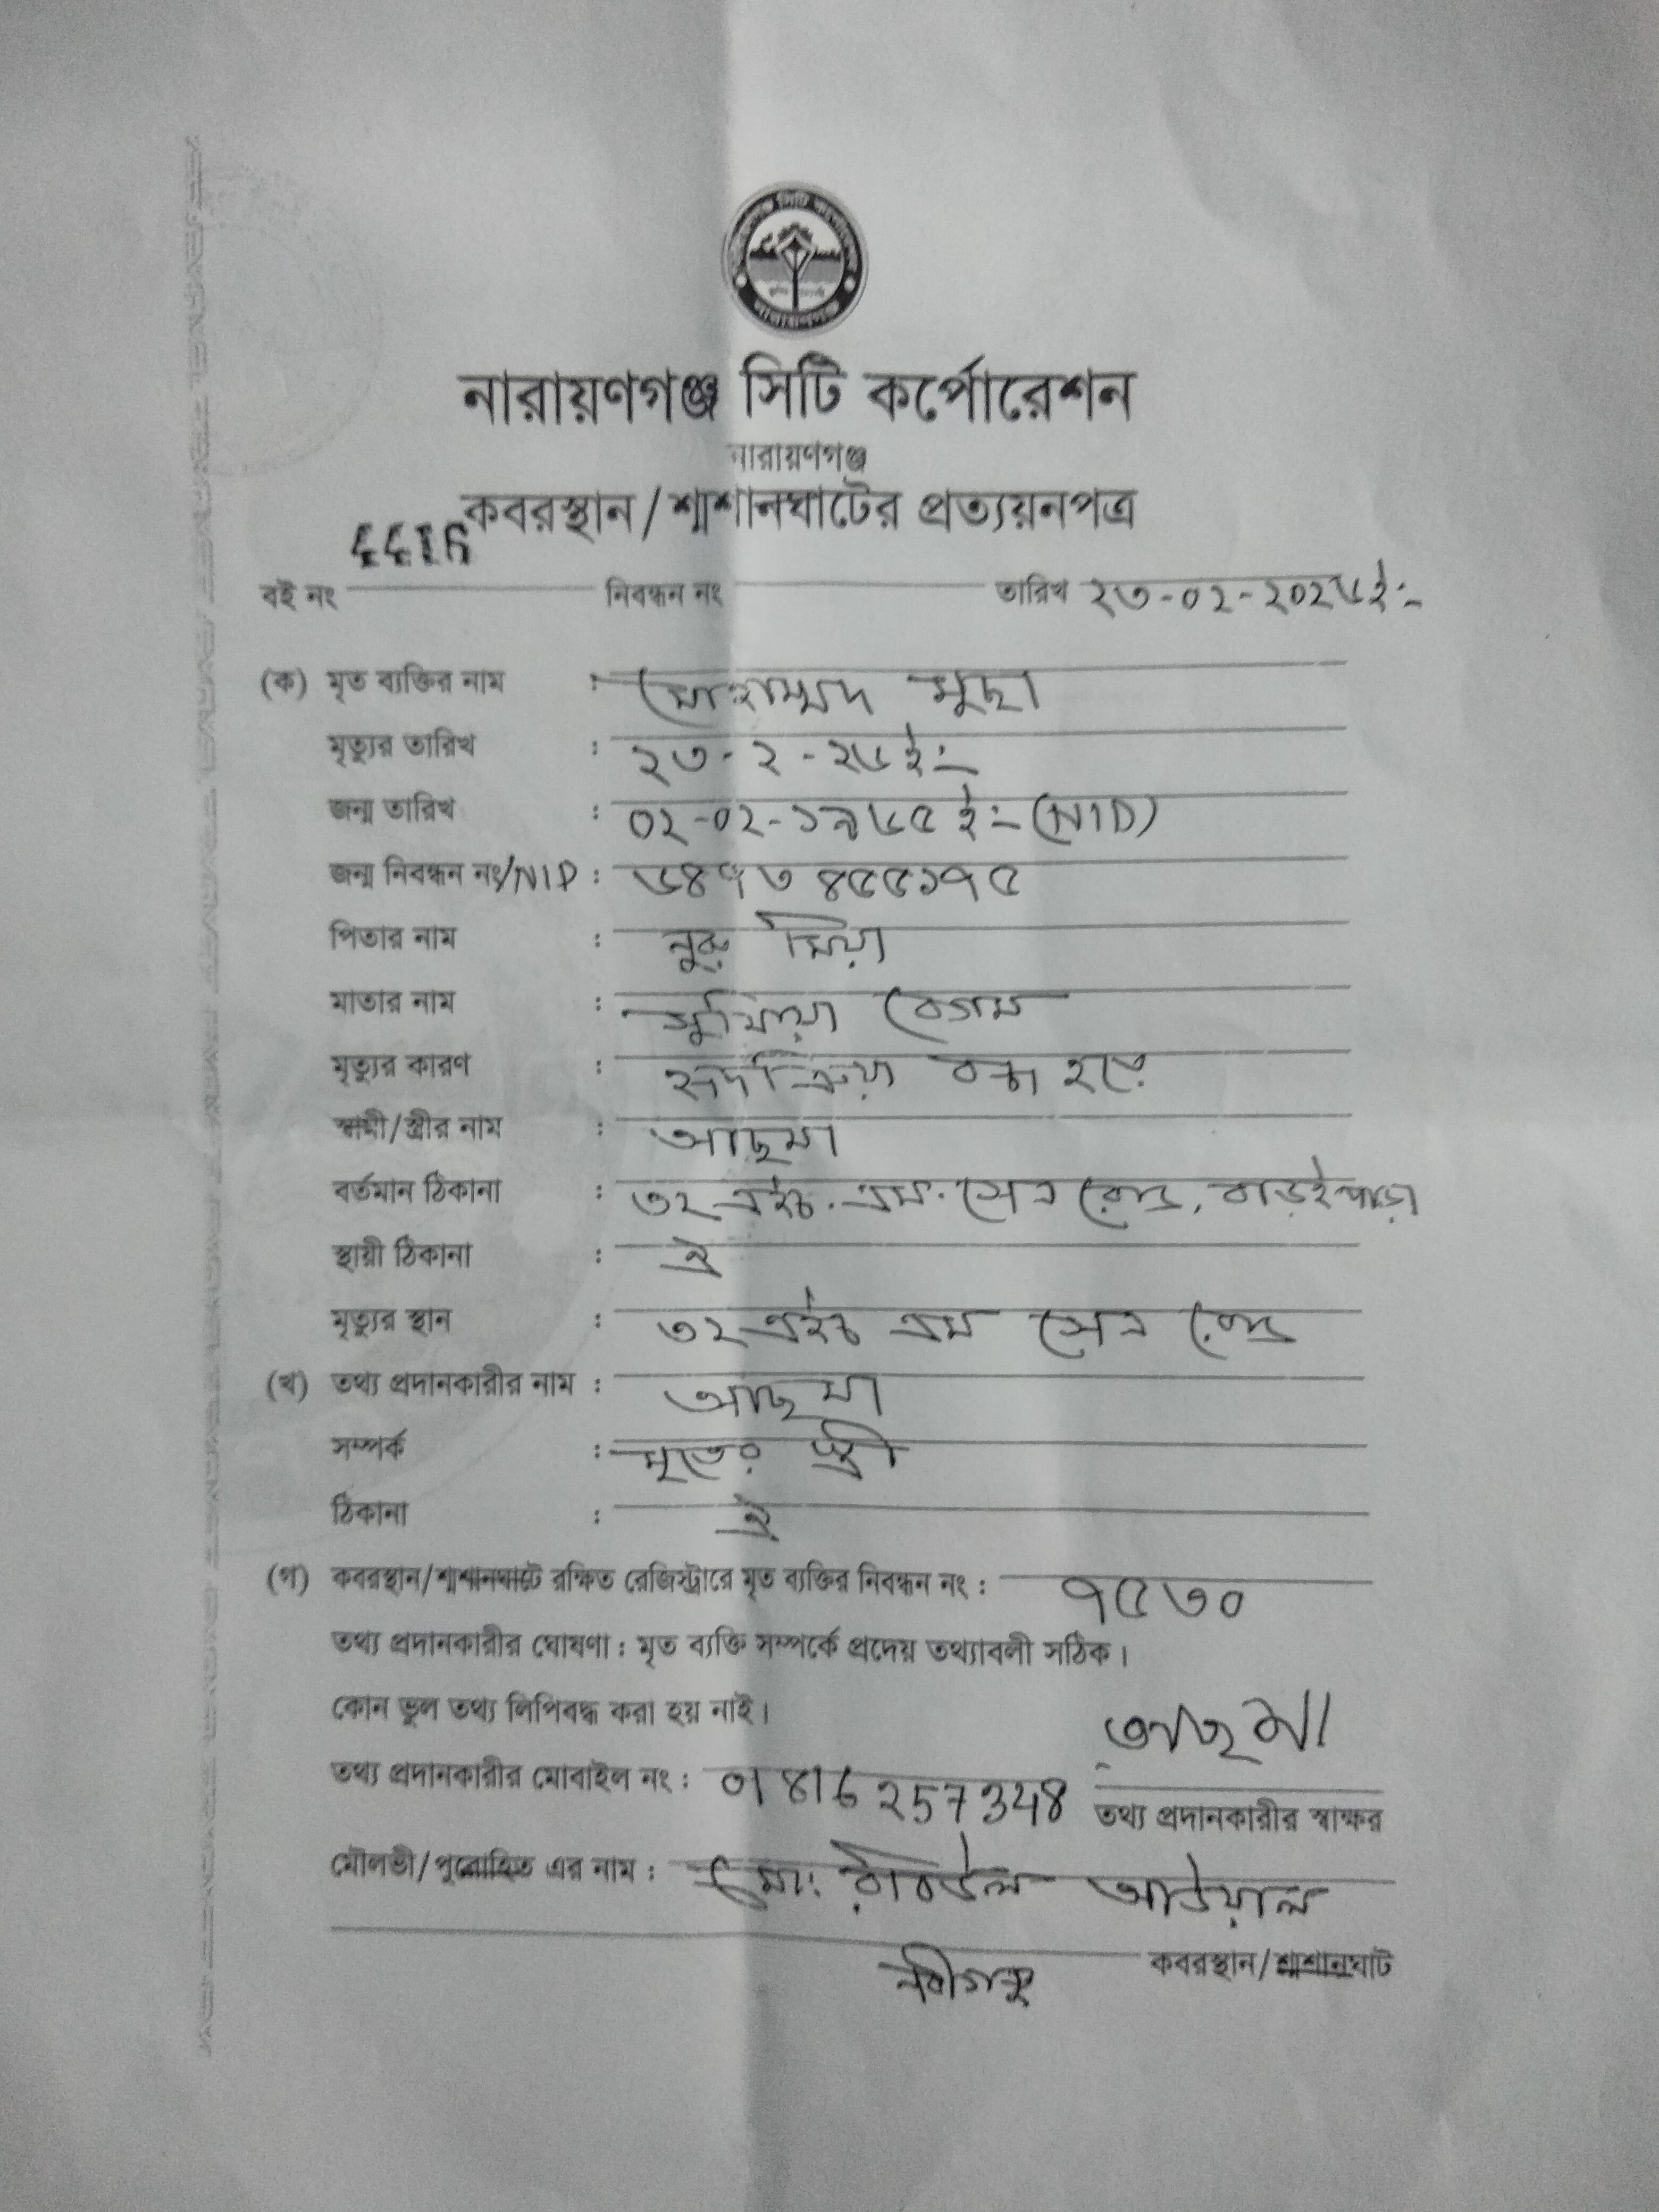 নারায়ণগঞ্জ সিটি কর্পোরেশন
নারায়ণগঞ্জ
কবরস্থান/শ্মশানঘাটের প্রত্যয়নপত্র
বই নং নিবন্ধন নং তারিখ ২৩-০২-২০২৬ইং
(ক) মৃত ব্যক্তির নাম : মোহাম্মদ মুছা
মৃত্যুর তারিখ : ২৩-২-২৬ইং
জন্ম তারিখ : ০২-০২-১৯৬৫ ইং (NID)
জন্ম নিবন্ধন নং/NID : ৬৪৭৩৪৫৫১৭৫
পিতার নাম : নুরু মিয়া
মাতার নাম : সুফিয়া বেগম
মৃত্যুর কারণ : হৃদক্রিয়া বন্ধ হয়ে
স্বামী/স্ত্রীর নাম : আছমা
বর্তমান ঠিকানা : ৩২ এইচ.এম. সেন রোড, বাড়ইপাড়া
স্থায়ী ঠিকানা : ঐ
মৃত্যুর স্থান : ৩২ এইচ এম সেন রোড
(খ) তথ্য প্রদানকারীর নাম : আছমা
সম্পর্ক : মৃতের স্ত্রী
ঠিকানা : ঐ
(গ) কবরস্থান/শ্মশানঘাটে রক্ষিত রেজিস্ট্রারে মৃত ব্যক্তির নিবন্ধন নং : ৭৫৩০
তথ্য প্রদানকারীর ঘোষণা : মৃত ব্যক্তি সম্পর্কে প্রদেয় তথ্যাবলী সঠিক।
কোন ভুল তথ্য লিপিবদ্ধ করা হয় নাই।
আছমা
তথ্য প্রদানকারীর মোবাইল নং : 01816257348
তথ্য প্রদানকারীর স্বাক্ষর
মৌলভী/পুরোহিত এর নাম : মো: আউয়াল
নবীগঞ্জ কবরস্থান/শ্মশানঘাট